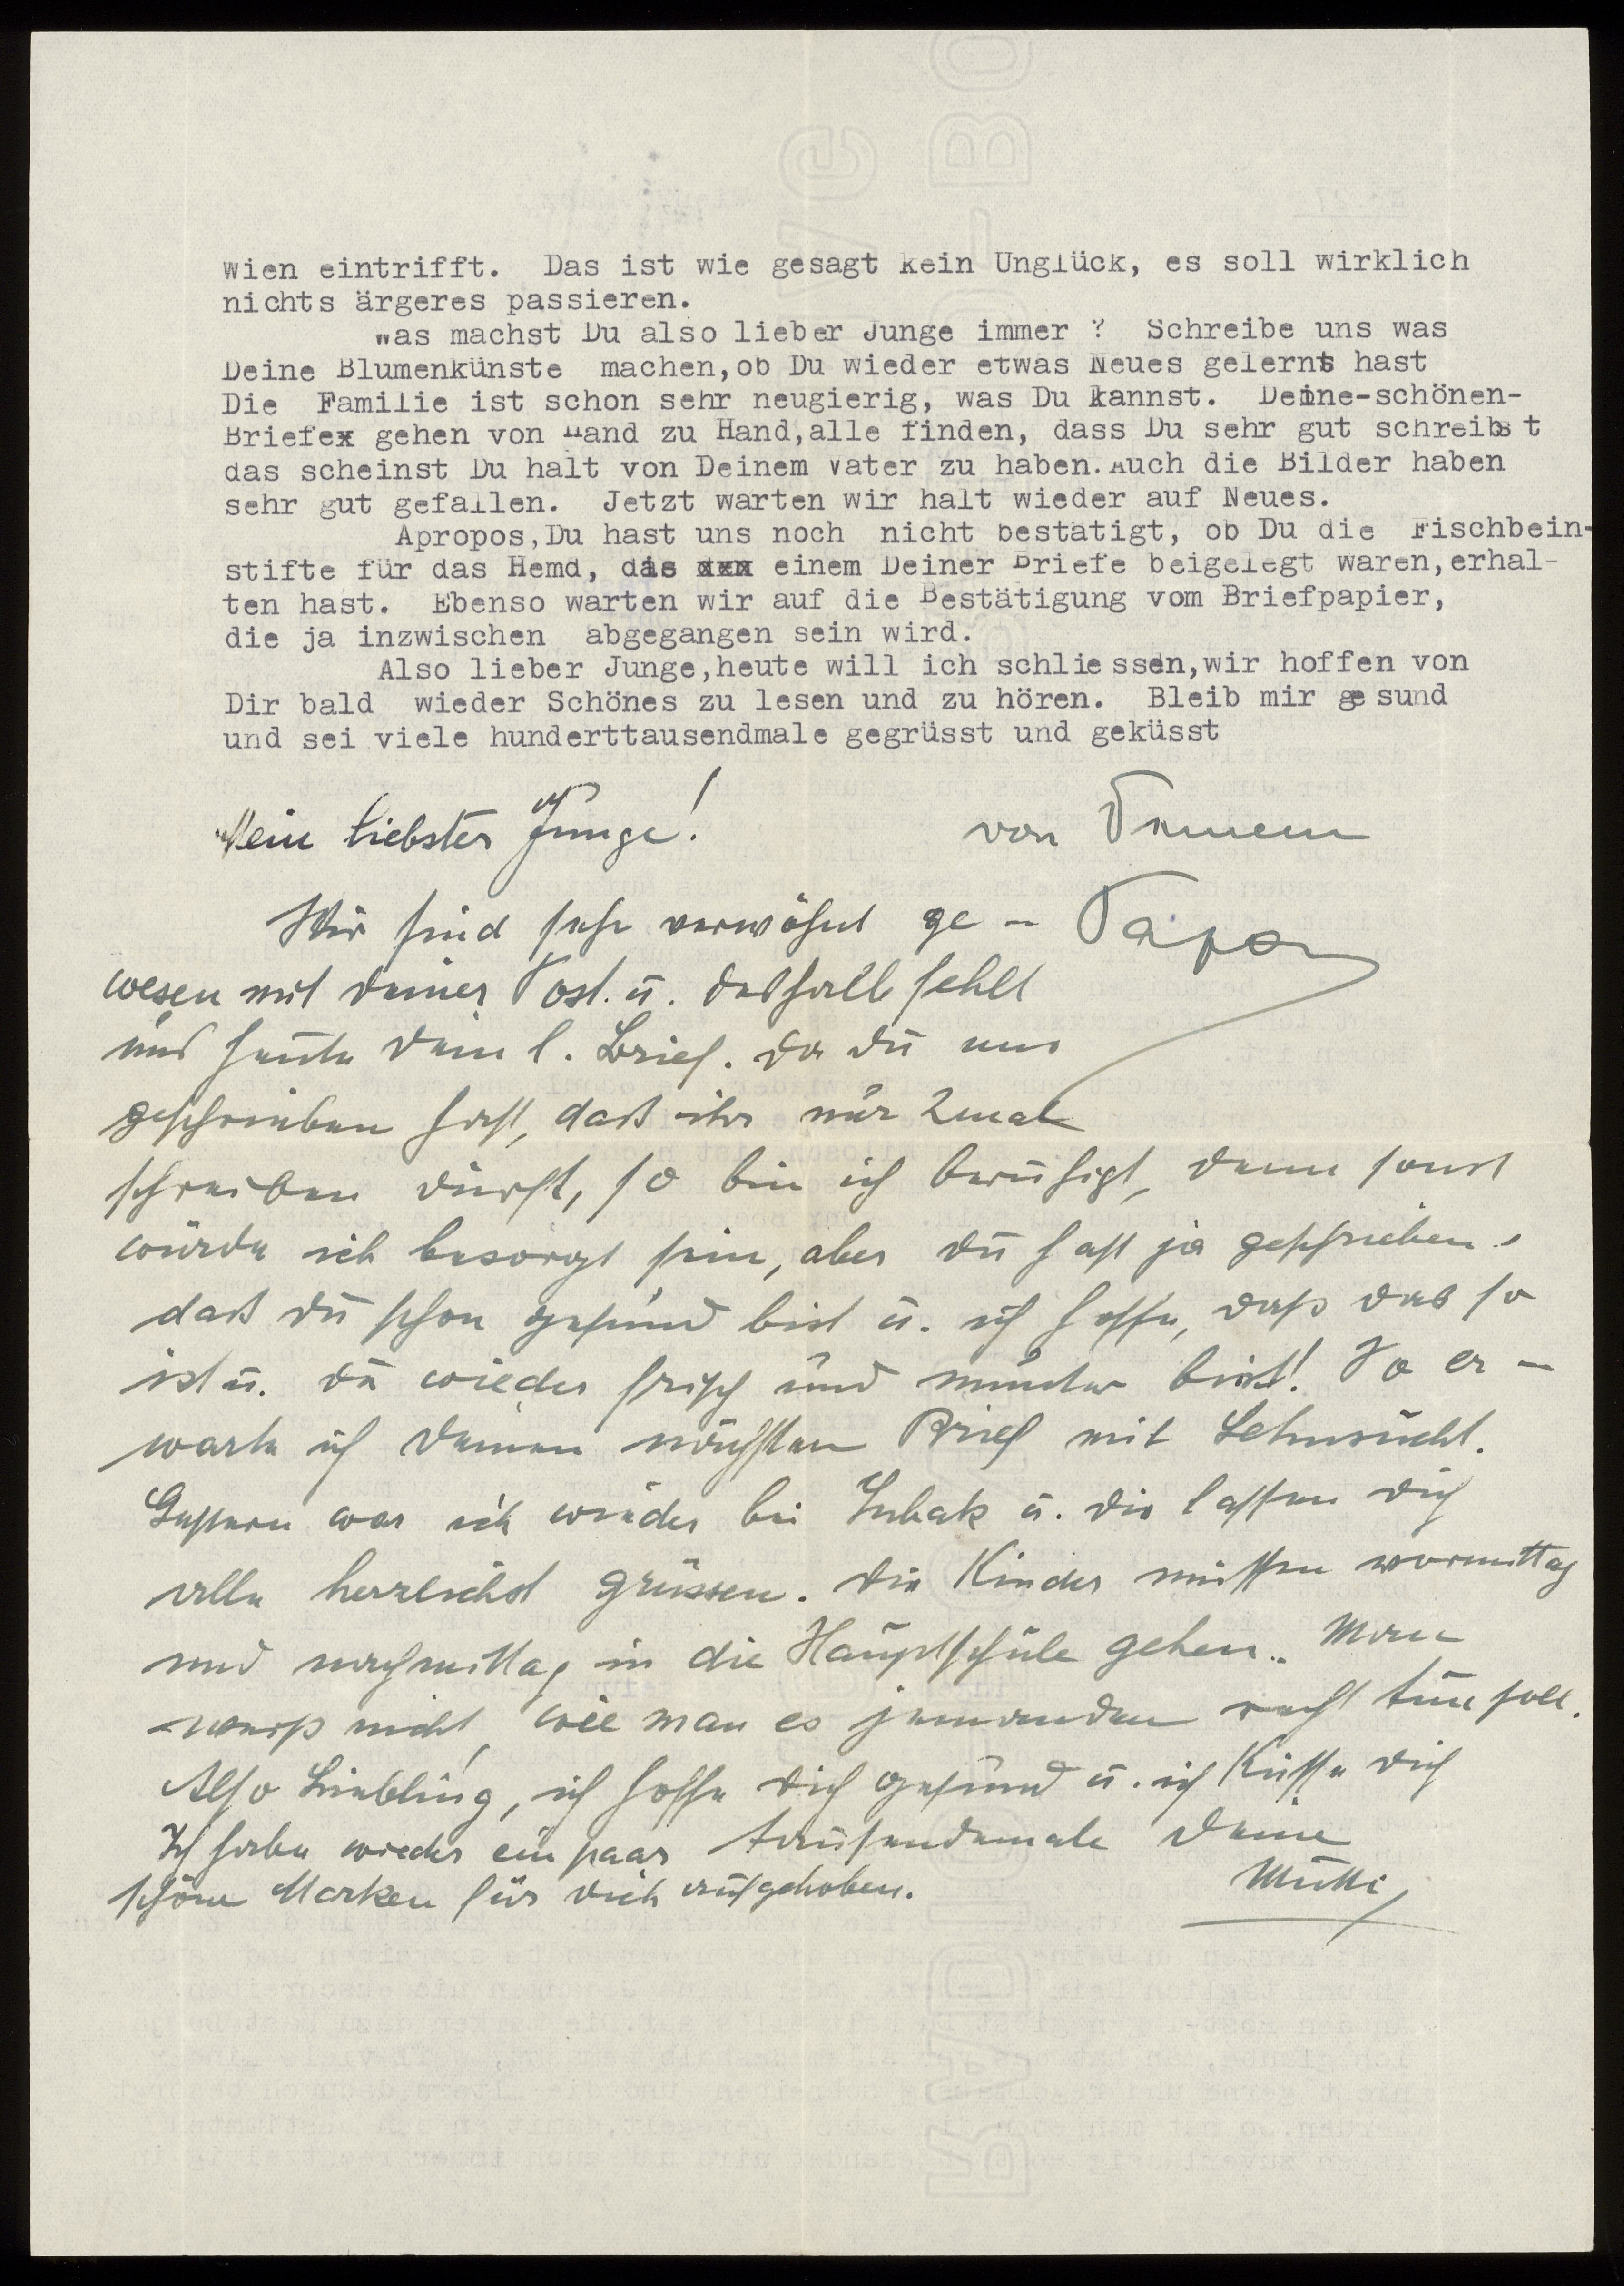 Wien eintrifft. Das ist wie gesagt kein Unglück, es soll wirklich
nichts ärgeres passieren.
Was machst Du also lieber Junge immer ? Schreibe uns was
Deine Blumenkünste machen, ob Du wieder etwas Neues gelernt hast
Die Familie ist schon sehr neugierig, was Du kannst. Deine-schönen-
Briefex gehen von Hand zu Hand, alle finden, dass Du sehr gut schreibst
das scheinst Du halt von Deinem Vater zu haben. Auch die Bilder haben
sehr gut gefallen. Jetzt warten wir halt wieder auf Neues.
Apropos, Du hast uns noch nicht bestätigt, ob Du die Fischbein-
stifte für das Hemd, die xxx einem Deiner Briefe beigelegt waren, erhal-
ten hast. Ebenso warten wir auf die Bestätigung vom Briefpapier,
die ja inzwischen abgegangen sein wird.
Also lieber Junge, heute will ich schliessen, wir hoffen von
Dir bald wieder Schönes zu lesen und zu hören. Bleib mir gesund
und sei viele hunderttausendmale gegrüsst und geküsst
von Deinem
Papa
Mein liebster Junge!
Wir sind sehr verwöhnt ge-
wesen mit Deiner Post u. deshalb fehlt
uns heute Dein l. Brief. Da Du uns
geschrieben hast, daß ihr nur 2mal
schreiben dürft, so bin ich beruhigt, denn sonst
würde ich besorgt sein, aber Du hast ja geschrieben,
daß Du schon gesund bist u. ich hoffe, daß das so
ist u. Du wieder frisch und munter bist! So er-
warte ich Deinen nächsten Brief mit Sehnsucht.
Gestern war ich wieder bei u. die lassen Dich
alle herzlichst grüssen. Die Kinder müssen vormittag
und nachmittag in die Hauptschule gehen. Man
weiß nicht, wie man es jemanden recht tun soll.
Also Liebling, ich hoffe Dich gesund u. ich küsse Dich
tausendemale Deine
Mutti
Ich habe wieder ein paar
schöne Marken für Dich aufgehoben.